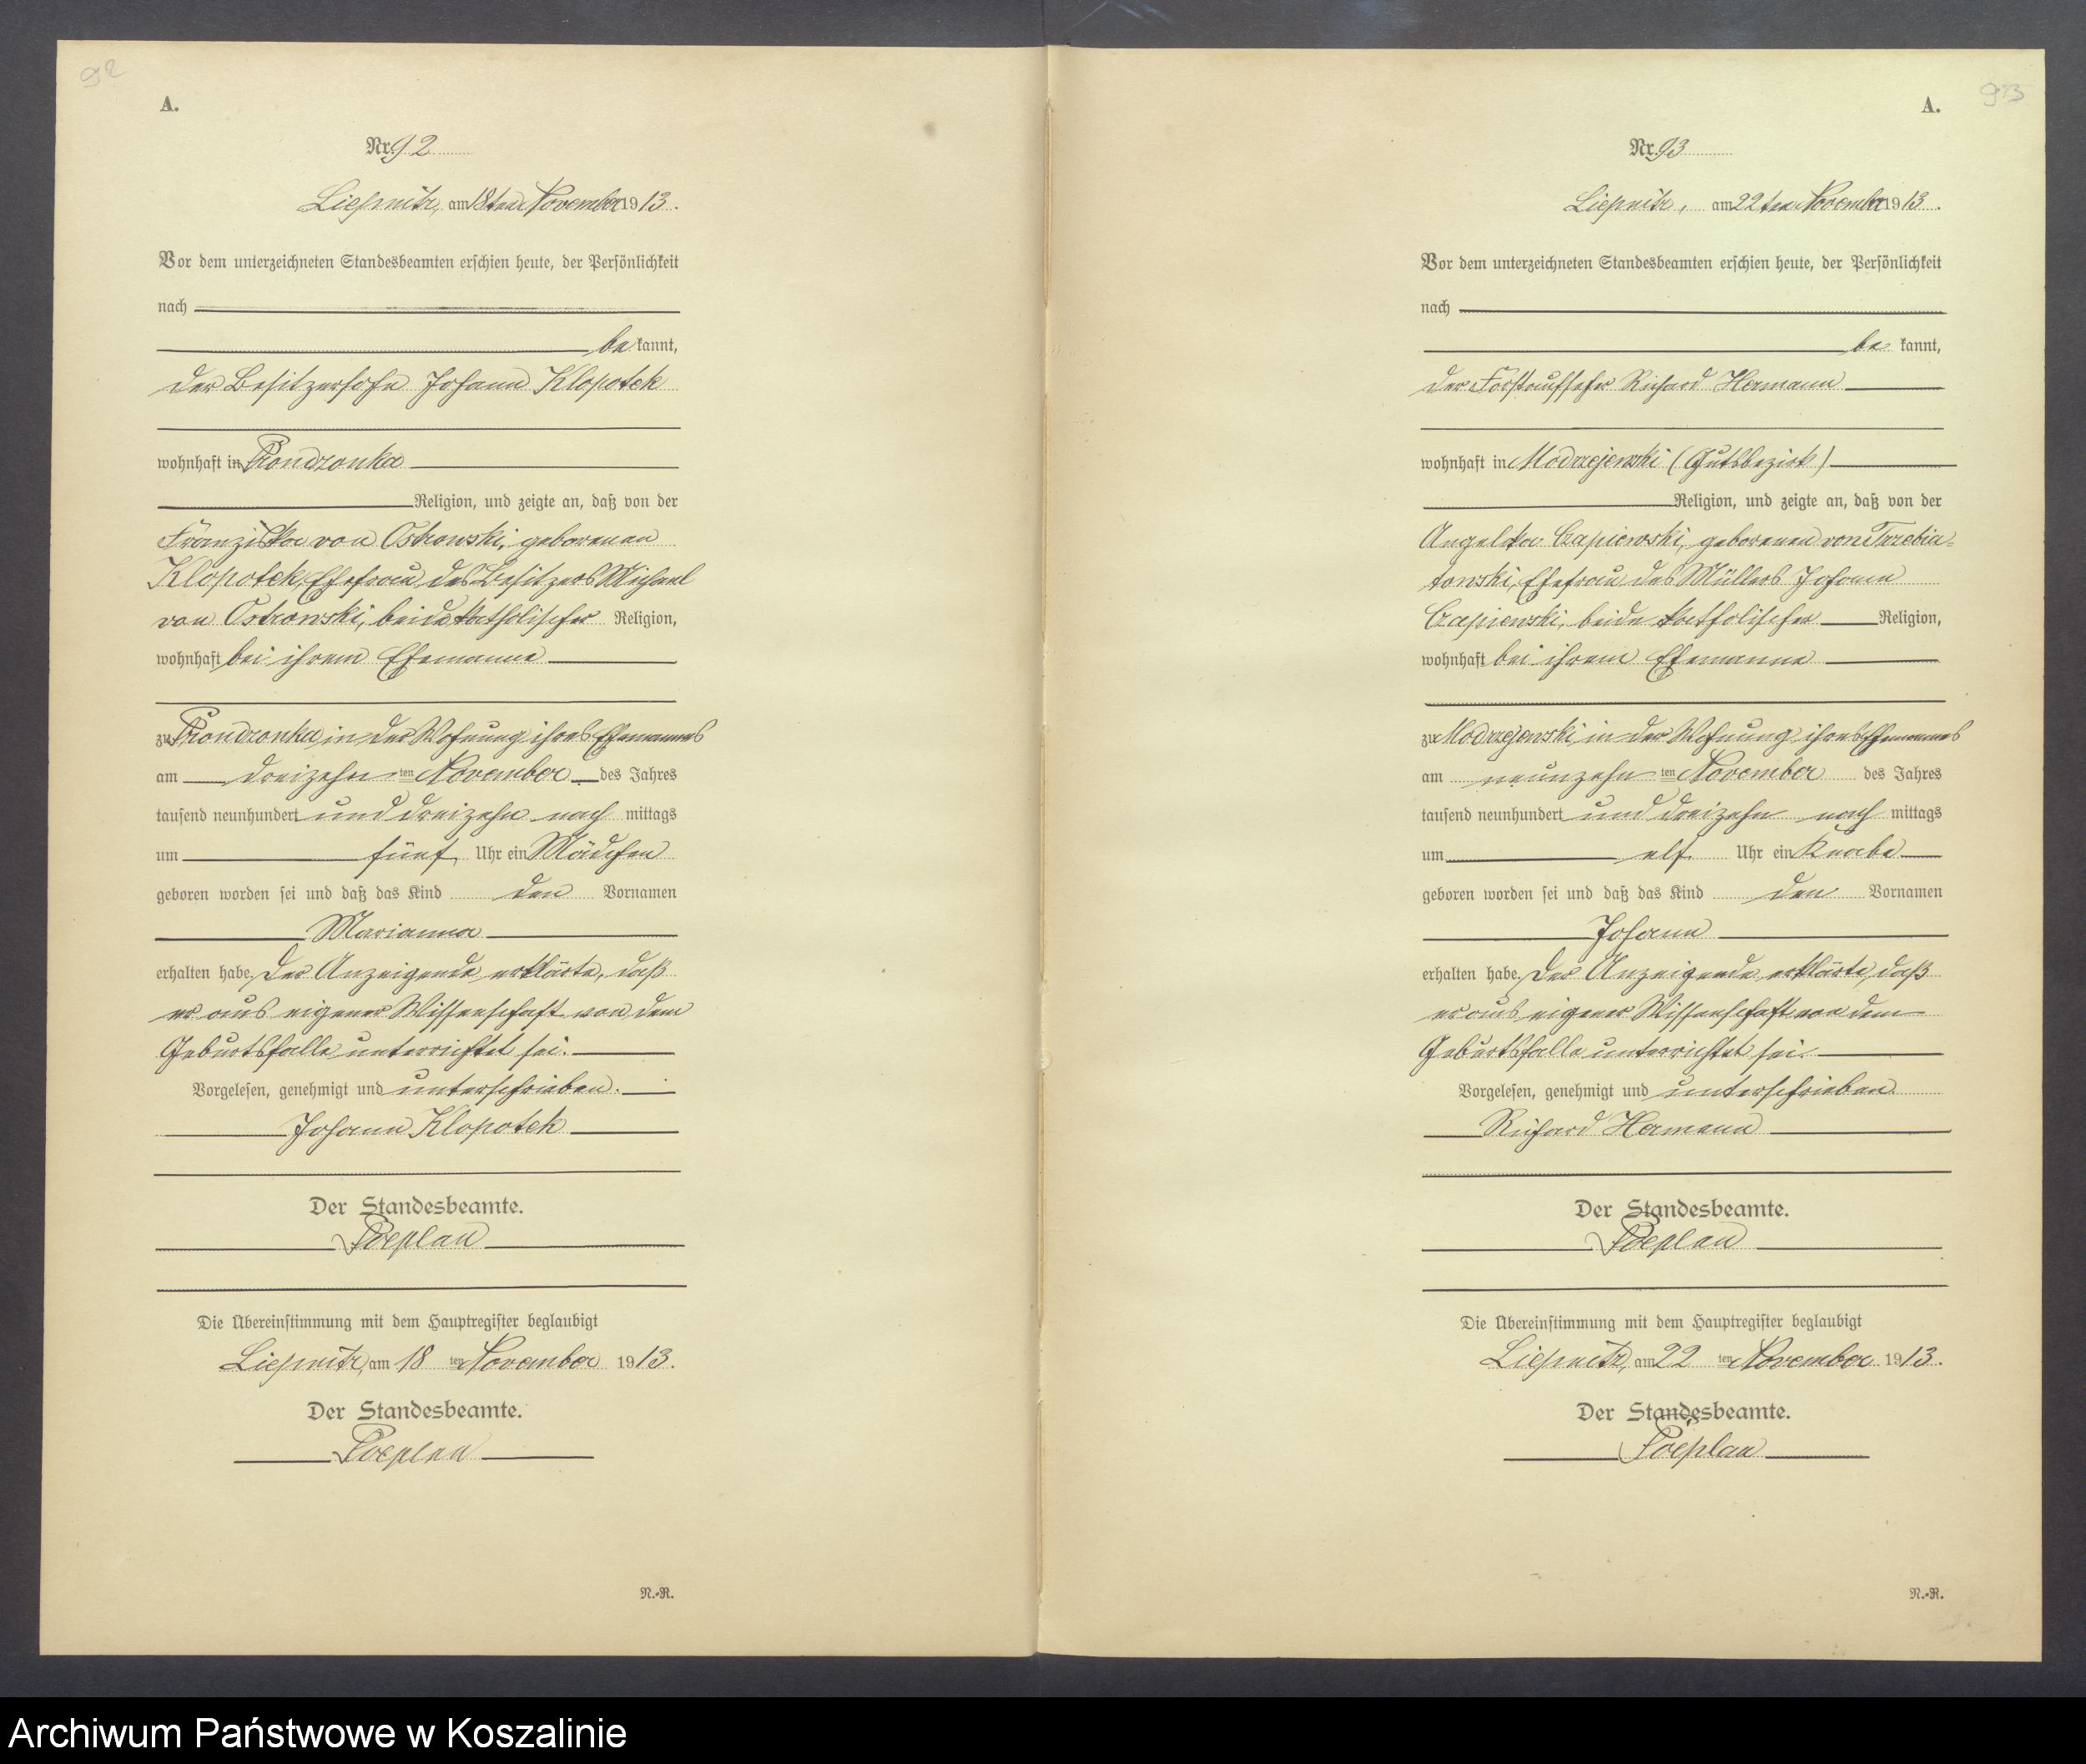 92
A.
Nr. 92
Liepnitz, am 18ten November 1913.
Vor dem unterzeichneten Standesbeamten erschien heute, der Persönlichkeit
nach
be kannt,
der Besitzersohn Johann Klopotek
wohnhaft in Prondzonka
Religion, und zeigte an, daß von der
Franziska von Ostrowski, geborenen
Klopotek, Ehefrau des Besitzers Michael
von Ostrowski, beide katholischer Religion,
wohnhaft bei ihrem Ehemanne
zu Prondzonka in der Wohnung ihres Ehemannes
am dreizehn ten November des Jahres
tausend neunhundert und dreizehn nach mittags
um fünf Uhr ein Mädchen
geboren worden sei und daß das Kind den Vornamen
Marianna
erhalten habe. Der Anzeigende erklärte, daß
er aus eigener Wissenschaft von dem
Geburtsfalle unterrichtet sei.
Vorgelesen, genehmigt und unterschrieben.
Johann Klopotek
Der Standesbeamte.
Poeplau
Die Übereinstimmung mit dem Hauptregister beglaubigt
Liepnitz, am 18 ten November 1913.
Der Standesbeamte.
Poeplau
N.-R.
93
A.
Nr. 93
Liepnitz, am 22ten November 1913.
Vor dem unterzeichneten Standesbeamten erschien heute, der Persönlichkeit
nach
be kannt,
der Forstaufseher Richard Hermann
wohnhaft in Modrzejewski (Gutsbezirk)
Religion, und zeigte an, daß von der
Angelika Czapiewski, geborenen von Trzebia-
towski, Ehefrau des Müllers Johann
Czapiewski, beide katholischer Religion,
wohnhaft bei ihrem Ehemanne
zu Modrzejewski in der Wohnung ihres Ehemannes
am neunzehn ten November des Jahres
tausend neunhundert und dreizehn nach mittags
um elf Uhr ein Knabe
geboren worden sei und daß das Kind den Vornamen
Johann
erhalten habe. Der Anzeigende erklärte, daß
er aus eigener Wissenschaft von dem
Geburtsfalle unterrichtet sei.
Vorgelesen, genehmigt und unterschrieben
Richard Hermann
Der Standesbeamte.
Poeplau
Die Übereinstimmung mit dem Hauptregister beglaubigt
Liepnitz, am 22 ten November 1913.
Der Standesbeamte.
Poeplau
N.-R.
Archiwum Państwowe w Koszalinie